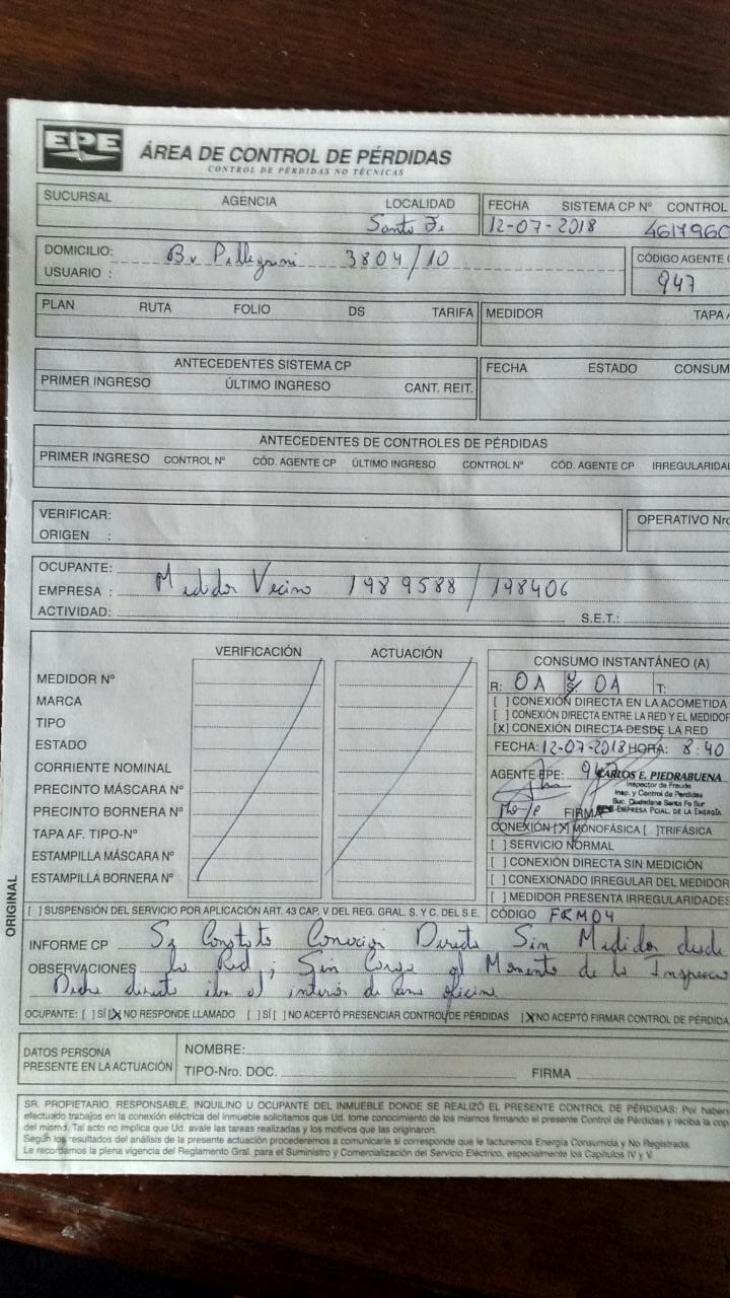 EPE
ÁREA DE CONTROL DE PÉRDIDAS
CONTROL DE PÉRDIDAS NO TÉCNICAS
SUCURSAL AGENCIA LOCALIDAD
Santa Fe
FECHA SISTEMA CP Nº CONTROL
12-07-2018 461796
DOMICILIO: Bv Pellegrini 3804/10
USUARIO :
CÓDIGO AGENTE
947
PLAN RUTA FOLIO DS TARIFA MEDIDOR TAPA
ANTECEDENTES SISTEMA CP
PRIMER INGRESO ÚLTIMO INGRESO CANT. REIT.
FECHA ESTADO CONSUM
ANTECEDENTES DE CONTROLES DE PÉRDIDAS
PRIMER INGRESO CONTROL Nº CÓD. AGENTE CP ÚLTIMO INGRESO CONTROL Nº CÓD. AGENTE CP IRREGULARIDA
VERIFICAR:
ORIGEN :
OPERATIVO Nro
OCUPANTE:
EMPRESA : Medidor Vecino 1989588/198406
ACTIVIDAD: S.E.T.:
VERIFICACIÓN ACTUACIÓN
MEDIDOR Nº
MARCA
TIPO
ESTADO
CORRIENTE NOMINAL
PRECINTO MÁSCARA Nº
PRECINTO BORNERA Nº
TAPA AF. TIPO-Nº
ESTAMPILLA MÁSCARA Nº
ESTAMPILLA BORNERA Nº
CONSUMO INSTANTÁNEO (A)
R: 0A S: 0A T:
[ ] CONEXIÓN DIRECTA EN LA ACOMETIDA
[ ] CONEXIÓN DIRECTA ENTRE LA RED Y EL MEDIDOR
[X] CONEXIÓN DIRECTA DESDE LA RED
FECHA: 12-07-2018 HORA: 8:40
AGENTE EPE: 947 CARLOS E. PIEDRABUENA
Inspector de Fraude
Insp. y Control de Perdidas
Suc. Ciudadana Santa Fe Sur
EMPRESA PCIAL. DE LA ENERGIA
FIRMA
CONEXIÓN [X] MONOFÁSICA [ ] TRIFÁSICA
[ ] SERVICIO NORMAL
[ ] CONEXIÓN DIRECTA SIN MEDICIÓN
[ ] CONEXIONADO IRREGULAR DEL MEDIDOR
[ ] MEDIDOR PRESENTA IRREGULARIDADES
[ ] SUSPENSIÓN DEL SERVICIO POR APLICACIÓN ART. 43 CAP. V DEL REG. GRAL. S. Y C. DEL S.E.
CÓDIGO FRM04
ORIGINAL
INFORME CP Se Constato Conexion Directa Sin Medidor desde
OBSERVACIONES la Red; Sin Carga al Momento de la Inspeccio
Dicha directa iba al interior de una oficina
OCUPANTE: [ ] SÍ [X] NO RESPONDE LLAMADO [ ] SÍ [ ] NO ACEPTÓ PRESENCIAR CONTROL DE PÉRDIDAS [X] NO ACEPTÓ FIRMAR CONTROL DE PÉRDIDA
DATOS PERSONA
PRESENTE EN LA ACTUACIÓN
NOMBRE:
TIPO-Nro. DOC. FIRMA
SR. PROPIETARIO, RESPONSABLE, INQUILINO U OCUPANTE DEL INMUEBLE DONDE SE REALIZÓ EL PRESENTE CONTROL DE PÉRDIDAS: Por haber
efectuado trabajos en la conexión eléctrica del inmueble solicitamos que Ud. tome conocimiento de los mismos firmando el presente Control de Pérdidas y reciba la cop
del mismo. Tal acto no implica que Ud. avale las tareas realizadas y los motivos que las originaron.
Según los resultados del análisis de la presente actuación procederemos a comunicarle si corresponde que le facturemos Energía Consumida y No Registrada.
Le recordamos la plena vigencia del Reglamento Gral. para el Suministro y Comercialización del Servicio Eléctrico, especialmente los Capítulos IV y V.